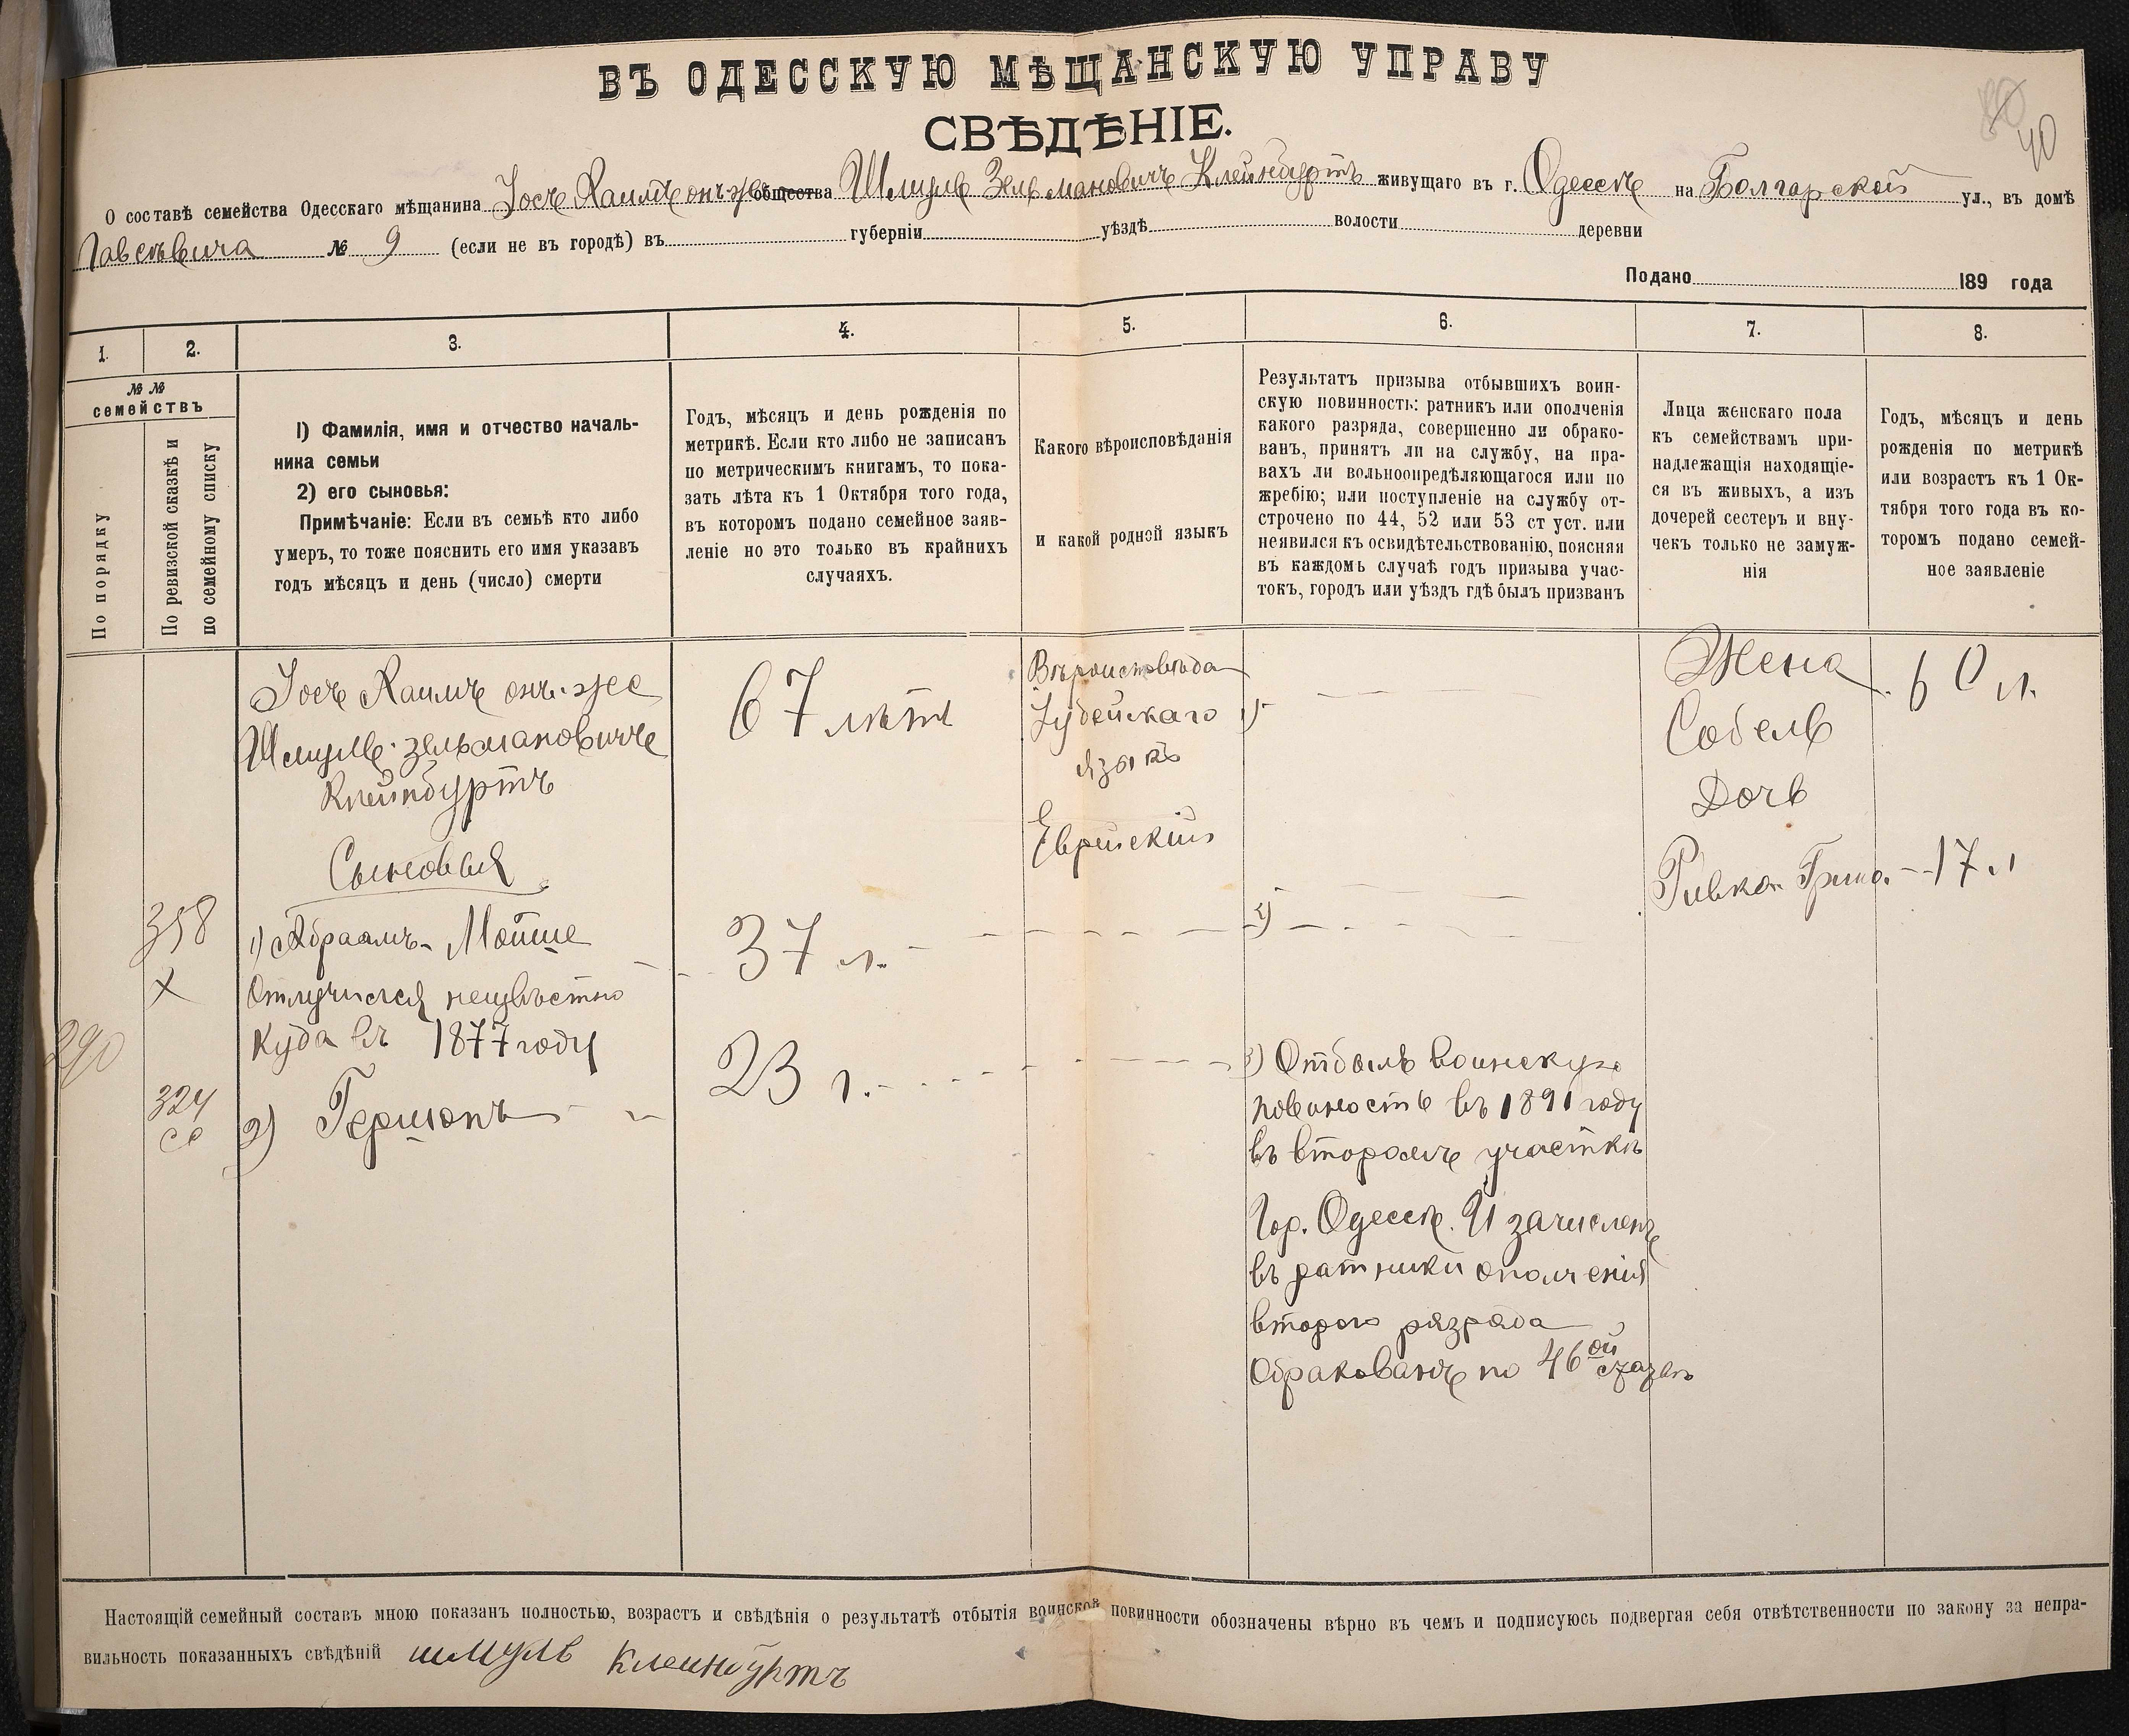 ВЪ ОДЕССКУЮ МѢЩАНСКУЮ УПРАВУ
СВѢДѢНІЕ.
40
О составѣ семейства Одесскаго мѣщанина Іось Хаимъ онъ-же общества Шмуль Зельмановичъ Клейнбуртъ живущаго въ г. Одессѣ на Болгарской ул., въ домѣ
№ 9 (если не въ городѣ) въ губерніи уѣздѣ волости деревни
Подано 189 года
1.
2.
3.
4.
5.
6.
7.
8.
№ №
семействъ
По порядку
По ревизской сказкѣ и
по семейному списку
1) Фамилія, имя и отчество началь-
ника семьи
2) его сыновья:
Примѣчаніе: Если въ семьѣ кто либо
умеръ, то тоже пояснить его имя указавъ
годъ мѣсяцъ и день (число) смерти
Годъ, мѣсяцъ и день рожденія по
метрикѣ. Если кто либо не записанъ
по метрическимъ книгамъ, то пока-
зать лѣта къ 1 Октября того года,
въ которомъ подано семейное заяв-
леніе но это только въ крайнихъ
случаяхъ.
Какого вѣроисповѣданія
и какой родной языкъ
Результатъ призыва отбывшихъ воин-
скую повинность: ратникъ или ополченія
какого разряда, совершенно ли обрако-
ванъ, принятъ ли на службу, на пра-
вахъ ли вольноопредѣляющагося или по
жребію; или поступленіе на службу от-
строчено по 44, 52 или 53 ст уст. или
неявился къ освидѣтельствованію, поясняя
въ каждомъ случаѣ годъ призыва учас-
токъ, городъ или уѣздъ гдѣ былъ призванъ
Лица женскаго пола
къ семействамъ при-
надлежащія находящіе-
ся въ живыхъ, а изъ
дочерей сестеръ и вну-
чекъ только не замуж-
нія
Годъ, мѣсяцъ и день
рожденія по метрикѣ
или возрастъ къ 1 Ок-
тября того года въ ко-
торомъ подано семей-
ное заявленіе
Іось Хаимъ онъ-же
Шмуль Зельмановичъ
Клейнбуртъ
67 лѣтъ
Вѣроисповѣда
Іудейскаго
языкъ
Еврейскій
1)
Жена
Собель
60 л.
Дочь
Ривка 17 л
Сыновья
358
х
1) Абраамъ-Мойше
Отлучился неизвѣстно
куда въ 1877 году
37 л.
2)
290
324
2) Гершонъ
23 г.
3) Отбылъ воинскую
повиность въ 1891 году
въ второмъ участкѣ
Гор. Одессѣ. И зачисленъ
въ ратники ополченія
второго разряда
Обракованъ по 46ой
Настоящій семейный составъ мною показанъ полностью, возрастъ и свѣдѣнія о результатѣ отбытія воинской повинности обозначены вѣрно въ чемъ и подписуюсь подвергая себя отвѣтственности по закону за непра-
вильность показанныхъ свѣдѣній шмуль клеинбуртъ